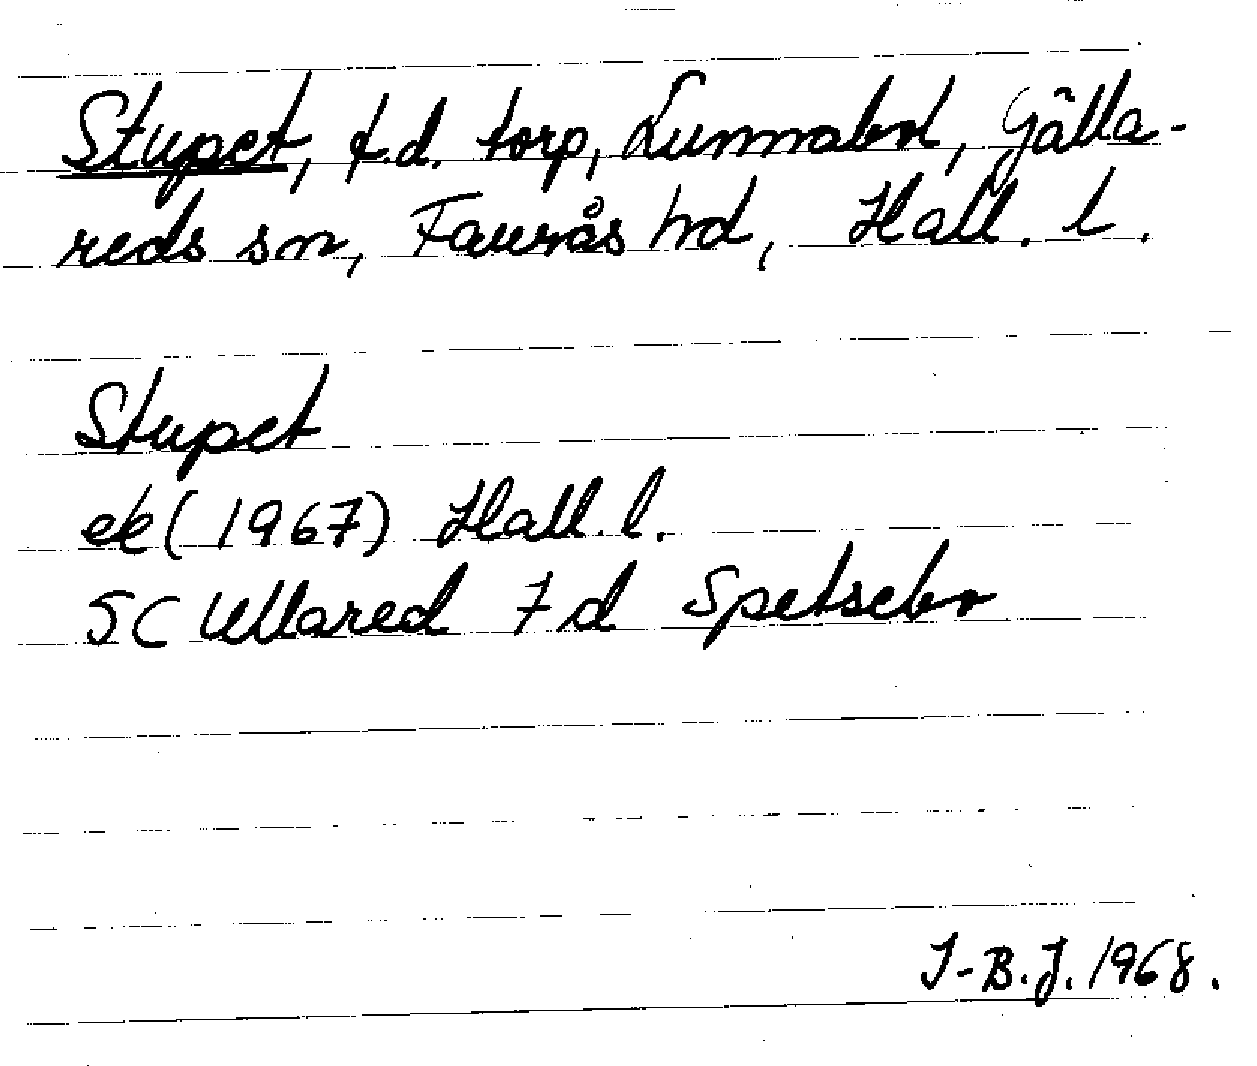 Stupet, f.d. torp, Lunnabol, Gälla-
reds sn, Faurås hd, Hall. l.
Stupet
ek (1967) Hall. l.
5C Ullared 7d Spetsebo
I-B.J. 1968.